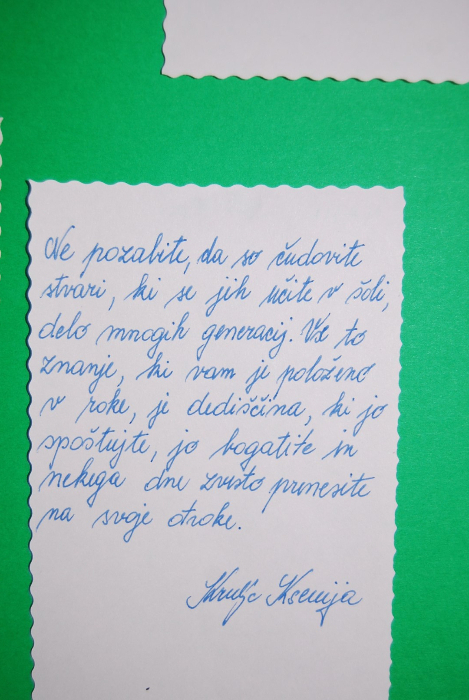 Ne pozabite, da so čudovite
stvari, ki se jih učite v šoli,
delo mnogih generacij. Vse to
znanje, ki vam je položeno
v roke, je dediščina, ki jo
spoštujte, jo bogatite in
nekega dne zvesto prenesite
na svoje otroke.
Ksenija